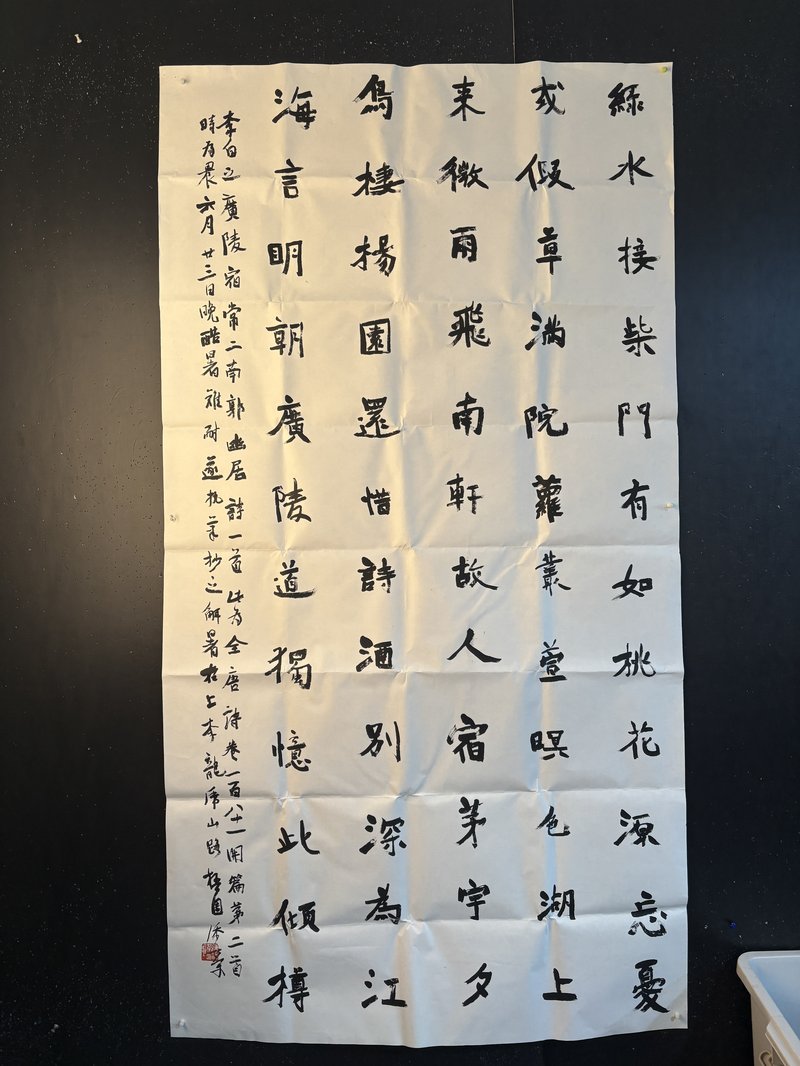 綠水接柴門有如桃花源忘憂
或假草滿院羅叢萱暝色湖上
来微雨飛南軒故人宿茅宇夕
鳥棲楊園還惜詩酒别深為江
海言明朝廣陵道獨憶此傾樽
李白之廣陵宿常二南郭幽居詩一首此為全唐詩卷一百八十一開篇第二首
時為晨六月廿三日晚酷暑難耐遂執筆抄之解暑於上李龍虎山路